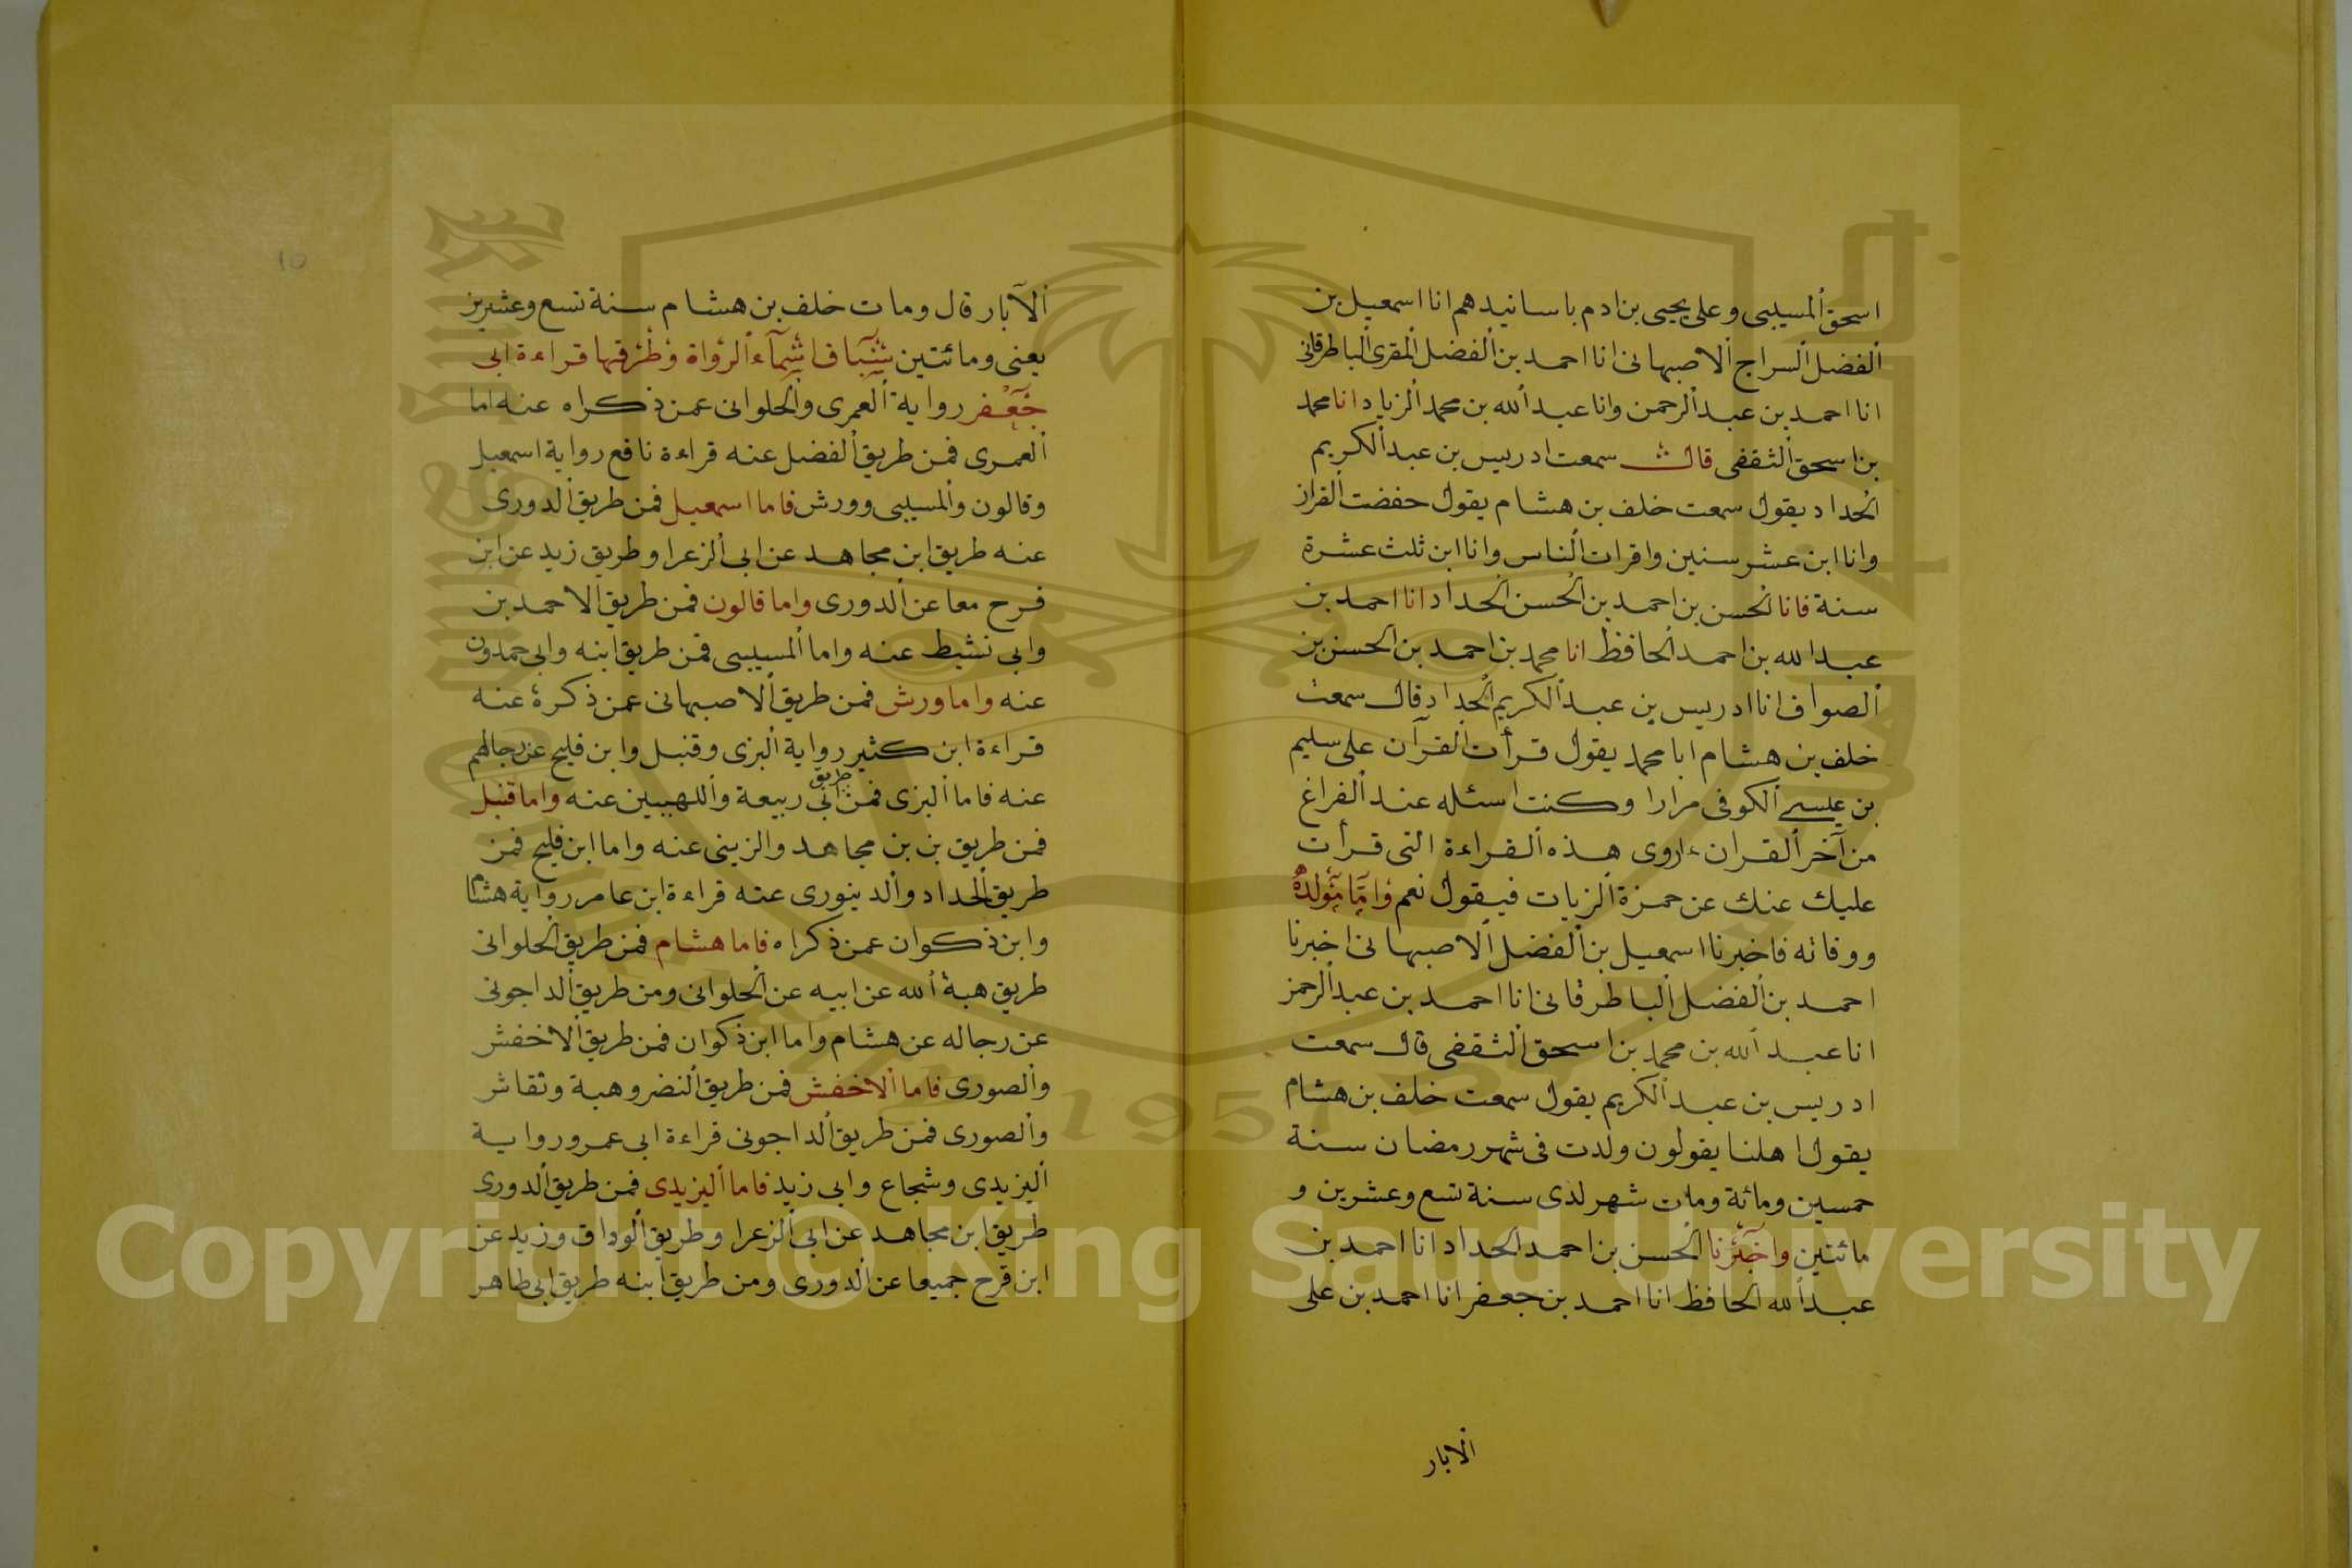 اسحق المسيبى وعلى يحيى بن ادم باسانيدهم انا اسمعيل بن
الفضل السراج الاصبهانى انا احمد بن الفضل المقرى الباطرقانى
انا احمد بن عبد الرحمن وانا عبد الله بن محمد الزياد انا محمد
بن اسحق الثقفى قال سمعت ادريس بن عبد الكريم
الحداد يقول سمعت خلف بن هشام يقول حفضت القران
وانا ابن عشر سنين واقرات الناس وانا ابن ثلث عشرة
سنة فانا الحسن بن احمد بن الحسن الحداد انا احمد بن
عبد الله بن احمد الحافظ انا محمد بن احمد بن الحسن بن
الصواف انا ادريس بن عبد الكريم الحداد قال سمعت
خلف بن هشام ابا محمد يقول قرأت القرآن على سليم
بن عيسى الكوفى مرارا وكنت اسئله عند الفراغ
من آخر القران ءاروى هذه القراءة التى قرأت
عليك عنك عن حمزة الزيات فيقول نعم واما مولده
ووفاته فاخبرنا اسمعيل بن الفضل الاصبهانى اخبرنا
احمد بن الفضل الباطرقانى انا احمد بن عبد الرحمن
انا عبد الله بن محمد بن اسحق الثقفى قال سمعت
ادريس بن عبد الكريم يقول سمعت خلف بن هشام
يقول اهلنا يقولون ولدت فى شهر رمضان سنة
خمسين ومائة ومات شهر لذى سنة تسع وعشرين و
مائتين واخبرنا الحسن بن احمد الحداد انا احمد بن
عبد الله الحافظ انا احمد بن جعفر انا احمد بن على
الابار
الآبار قال ومات خلف بن هشام سنة تسع وعشرين
يعنى ومائتين اسماء الرواة وطرقها قراءة ابى
جعفر رواية العمرى والحلوانى عمن ذكراه عنه اما
العمرى فمن طريق الفضل عنه قراءة نافع رواية اسمعيل
وقالون والمسيبى وورش فاما اسمعيل فمن طريق الدورى
عنه طريق ابن مجاهد عن ابى الزعرا وطريق زيد عن ابن
فرح معا عن الدورى واما قالون فمن طريق الاحمد بن
وابى نشيط عنه واما المسيبى فمن طريق ابنه وابى حمدون
عنه واما ورش فمن طريق الاصبهانى عمن ذكره عنه
قراءة ابن كثير رواية البزى وقنبل وابن فليح عن رجالهم
عنه فاما البزى فمن طريق ابى ربيعة واللهبيين عنه واما قنبل
فمن طريق بن بن مجاهد والزينى عنه واما ابن فليح فمن
طريق الحداد والدينورى عنه قراءة ابن عامر رواية هشام
وابن ذكوان عمن ذكراه فاما هشام فمن طريق الحلوانى
طريق هبة الله عن ابيه عن الحلوانى ومن طريق الداجونى
عن رجاله عن هشام واما ابن ذكوان فمن طريق الاخفش
والصورى فاما الاخفش فمن طريق النضر وهبة ونقاش
والصورى فمن طريق الداجونى قراءة ابى عمرو رواية
اليزيدى وشجاع وابى زيد فاما اليزيدى فمن طريق الدورى
طريق ابن مجاهد عن ابى الزعرا وطريق الوداق وزيد عن
ابن فرح جميعا عن الدورى ومن طريق ابنه طريق ابى طاهر
١٥
1957
Copyright © King Saud University